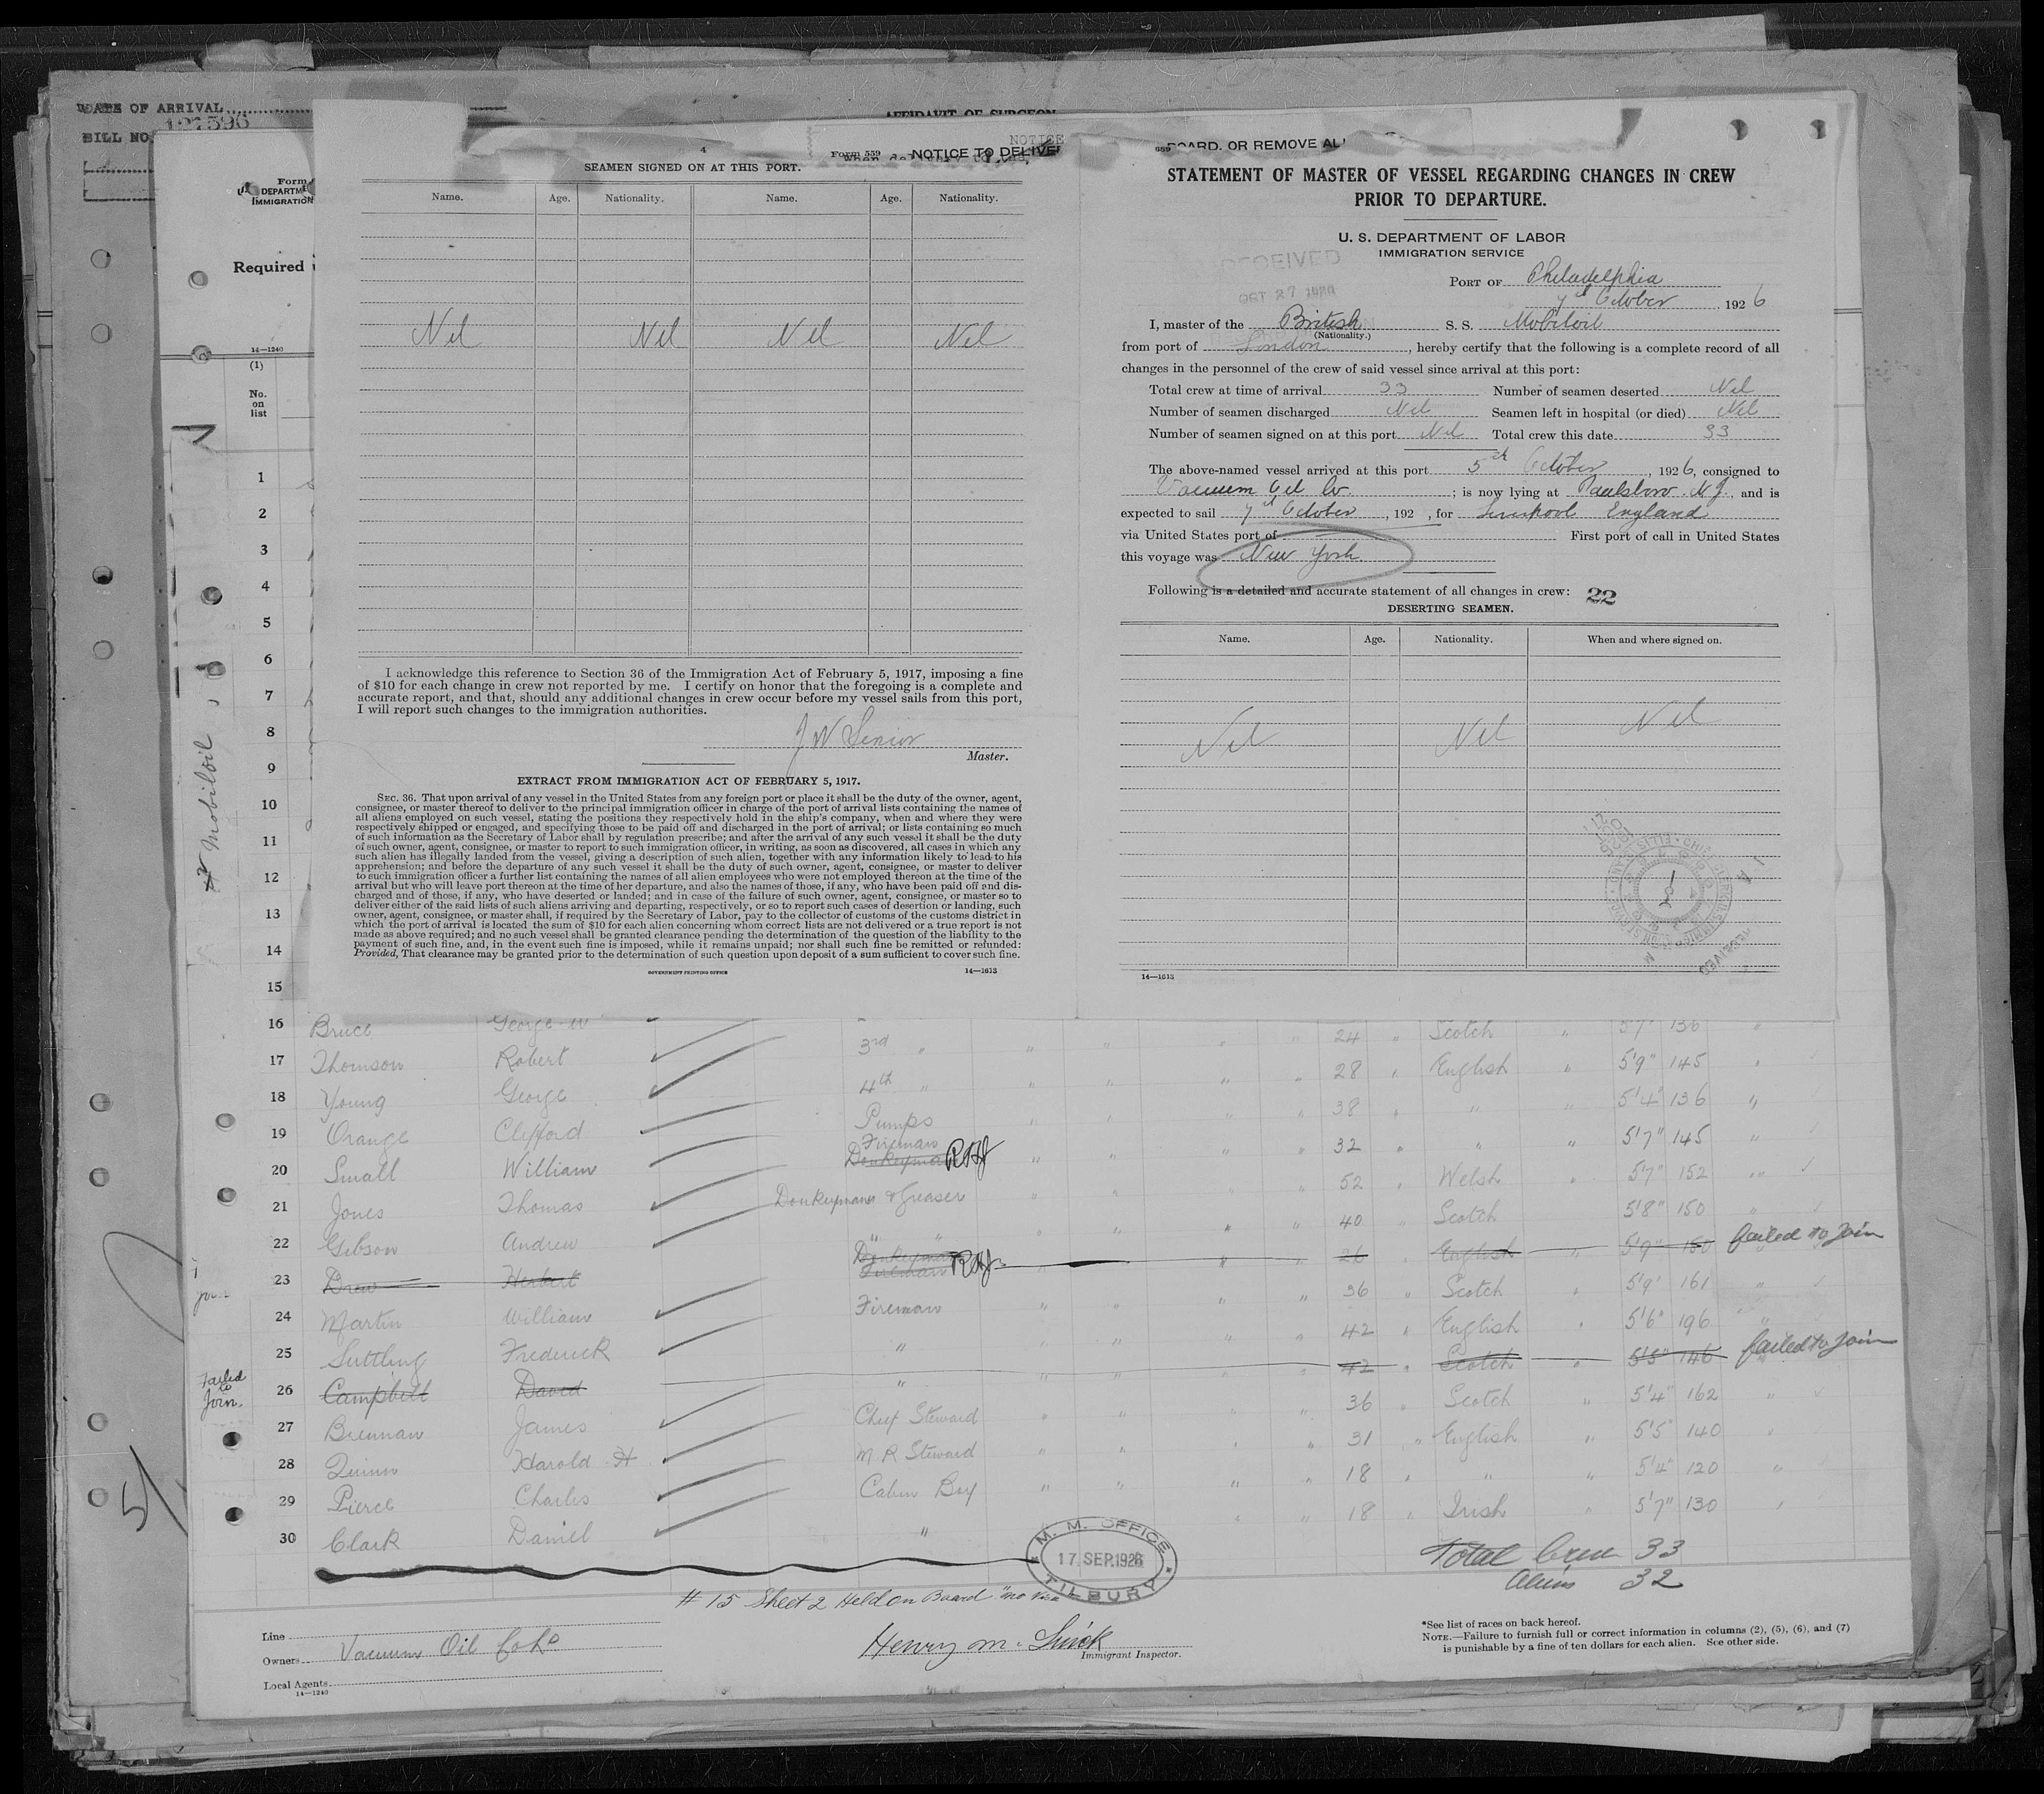 DATE OF ARRIVAL
BILL NO. 127596
AFFIDAVIT OF SURGEON
Form
U. S. DEPARTM
IMMIGRATION
Required
14—1240
(1)
No.
on
list
Mobiloil
1
2
3
4
5
6
7
8
9
10
11
12
13
14
15
4
SEAMEN SIGNED ON AT THIS PORT.
Form 559
NOTICE TO DELIVE
NOTICE
Name. Age. Nationality. Name. Age. Nationality.
Nil Nil Nil Nil
I acknowledge this reference to Section 36 of the Immigration Act of February 5, 1917, imposing a fine
of $10 for each change in crew not reported by me. I certify on honor that the foregoing is a complete and
accurate report, and that, should any additional changes in crew occur before my vessel sails from this port,
I will report such changes to the immigration authorities.
J W Senior
Master.
EXTRACT FROM IMMIGRATION ACT OF FEBRUARY 5, 1917.
SEC. 36. That upon arrival of any vessel in the United States from any foreign port or place it shall be the duty of the owner, agent,
consignee, or master thereof to deliver to the principal immigration officer in charge of the port of arrival lists containing the names of
all aliens employed on such vessel, stating the positions they respectively hold in the ship's company, when and where they were
respectively shipped or engaged, and specifying those to be paid off and discharged in the port of arrival; or lists containing so much
of such information as the Secretary of Labor shall by regulation prescribe; and after the arrival of any such vessel it shall be the duty
of such owner, agent, consignee, or master to report to such immigration officer, in writing, as soon as discovered, all cases in which any
such alien has illegally landed from the vessel, giving a description of such alien, together with any information likely to lead to his
apprehension; and before the departure of any such vessel it shall be the duty of such owner, agent, consignee, or master to deliver
to such immigration officer a further list containing the names of all alien employees who were not employed thereon at the time of the
arrival but who will leave port thereon at the time of her departure, and also the names of those, if any, who have been paid off and dis-
charged and of those, if any, who have deserted or landed; and in case of the failure of such owner, agent, consignee, or master so to
deliver either of the said lists of such aliens arriving and departing, respectively, or so to report such cases of desertion or landing, such
owner, agent, consignee, or master shall, if required by the Secretary of Labor, pay to the collector of customs of the customs district in
which the port of arrival is located the sum of $10 for each alien concerning whom correct lists are not delivered or a true report is not
made as above required; and no such vessel shall be granted clearance pending the determination of the question of the liability to the
payment of such fine, and, in the event such fine is imposed, while it remains unpaid; nor shall such fine be remitted or refunded:
Provided, That clearance may be granted prior to the determination of such question upon deposit of a sum sufficient to cover such fine.
GOVERNMENT PRINTING OFFICE 14—1613
689
BOARD, OR REMOVE AL
STATEMENT OF MASTER OF VESSEL REGARDING CHANGES IN CREW
PRIOR TO DEPARTURE.
U. S. DEPARTMENT OF LABOR
IMMIGRATION SERVICE
RECEIVED
OCT 27
PORT OF Philadelphia
7th October, 1926
I, master of the British S. S. Mobiloil
(Nationality.)
from port of London, hereby certify that the following is a complete record of all
changes in the personnel of the crew of said vessel since arrival at this port:
Total crew at time of arrival 33 Number of seamen deserted Nil
Number of seamen discharged Nil Seamen left in hospital (or died) Nil
Number of seamen signed on at this port Nil Total crew this date 33
The above-named vessel arrived at this port 5th October, 1926, consigned to
Vacuum Oil Co.; is now lying at Paulsboro. N.J., and is
expected to sail 7th October, 192 , for Liverpool England
via United States port of First port of call in United States
this voyage was New York.
Following is a detailed and accurate statement of all changes in crew: 22
DESERTING SEAMEN.
Name. Age. Nationality. When and where signed on.
Nil Nil Nil
14—1613
16 Bruce George W 3rd " " " " " 24 " Scotch " 5'7" 136 "
17 Thomson Robert 4th " " " " " 28 " English " 5'9" 145 "
18 Young George Pumps " " " " 38 " " " 5'4" 136 "
19 Orange Clifford Fireman 32 " " " 5'7" 145 "
20 Small William Donkeyman RHJ " " " " 52 " Welsh " 5'7" 152 "
21 Jones Thomas Donkeyman & Greaser " " " " 40 " Scotch 5'8" 150 "
22 Gibson Andrew " " Donkeyman 26 English 5'9" 150 failed to join
23 Drew Herbert Fireman RHJ 36 " Scotch " 5'9" 161 "
24 Martin William Fireman " " " " 42 " English " 5'6" 196 "
25 Suttling Frederick " " " " " 42 " Scotch " 5'5" 146 failed to join
Failed
to
Join.
26 Campbell David " 36 Scotch " 5'4" 162 "
27 Brennan James Chief Steward " " " " 31 " English " 5'5" 140 "
28 Quinn Harold H M R Steward " " " " 18 " " " 5'4" 120 "
29 Pierce Charles Cabin Boy " " " " 18 " Irish " 5'7" 130 "
30 Clark Daniel "
M. M. OFFICE
17 SEP.1926
TILBURY
Total Crew 33
Aliens 32
# 15 Sheet 2 Held on Board "no Visa
Line
Owners Vacuum Oil Co Ld
Local Agents
14—1240
Henry M. Smick
Immigrant Inspector.
*See list of races on back hereof.
NOTE.—Failure to furnish full or correct information in columns (2), (5), (6), and (7)
is punishable by a fine of ten dollars for each alien. See other side.
51